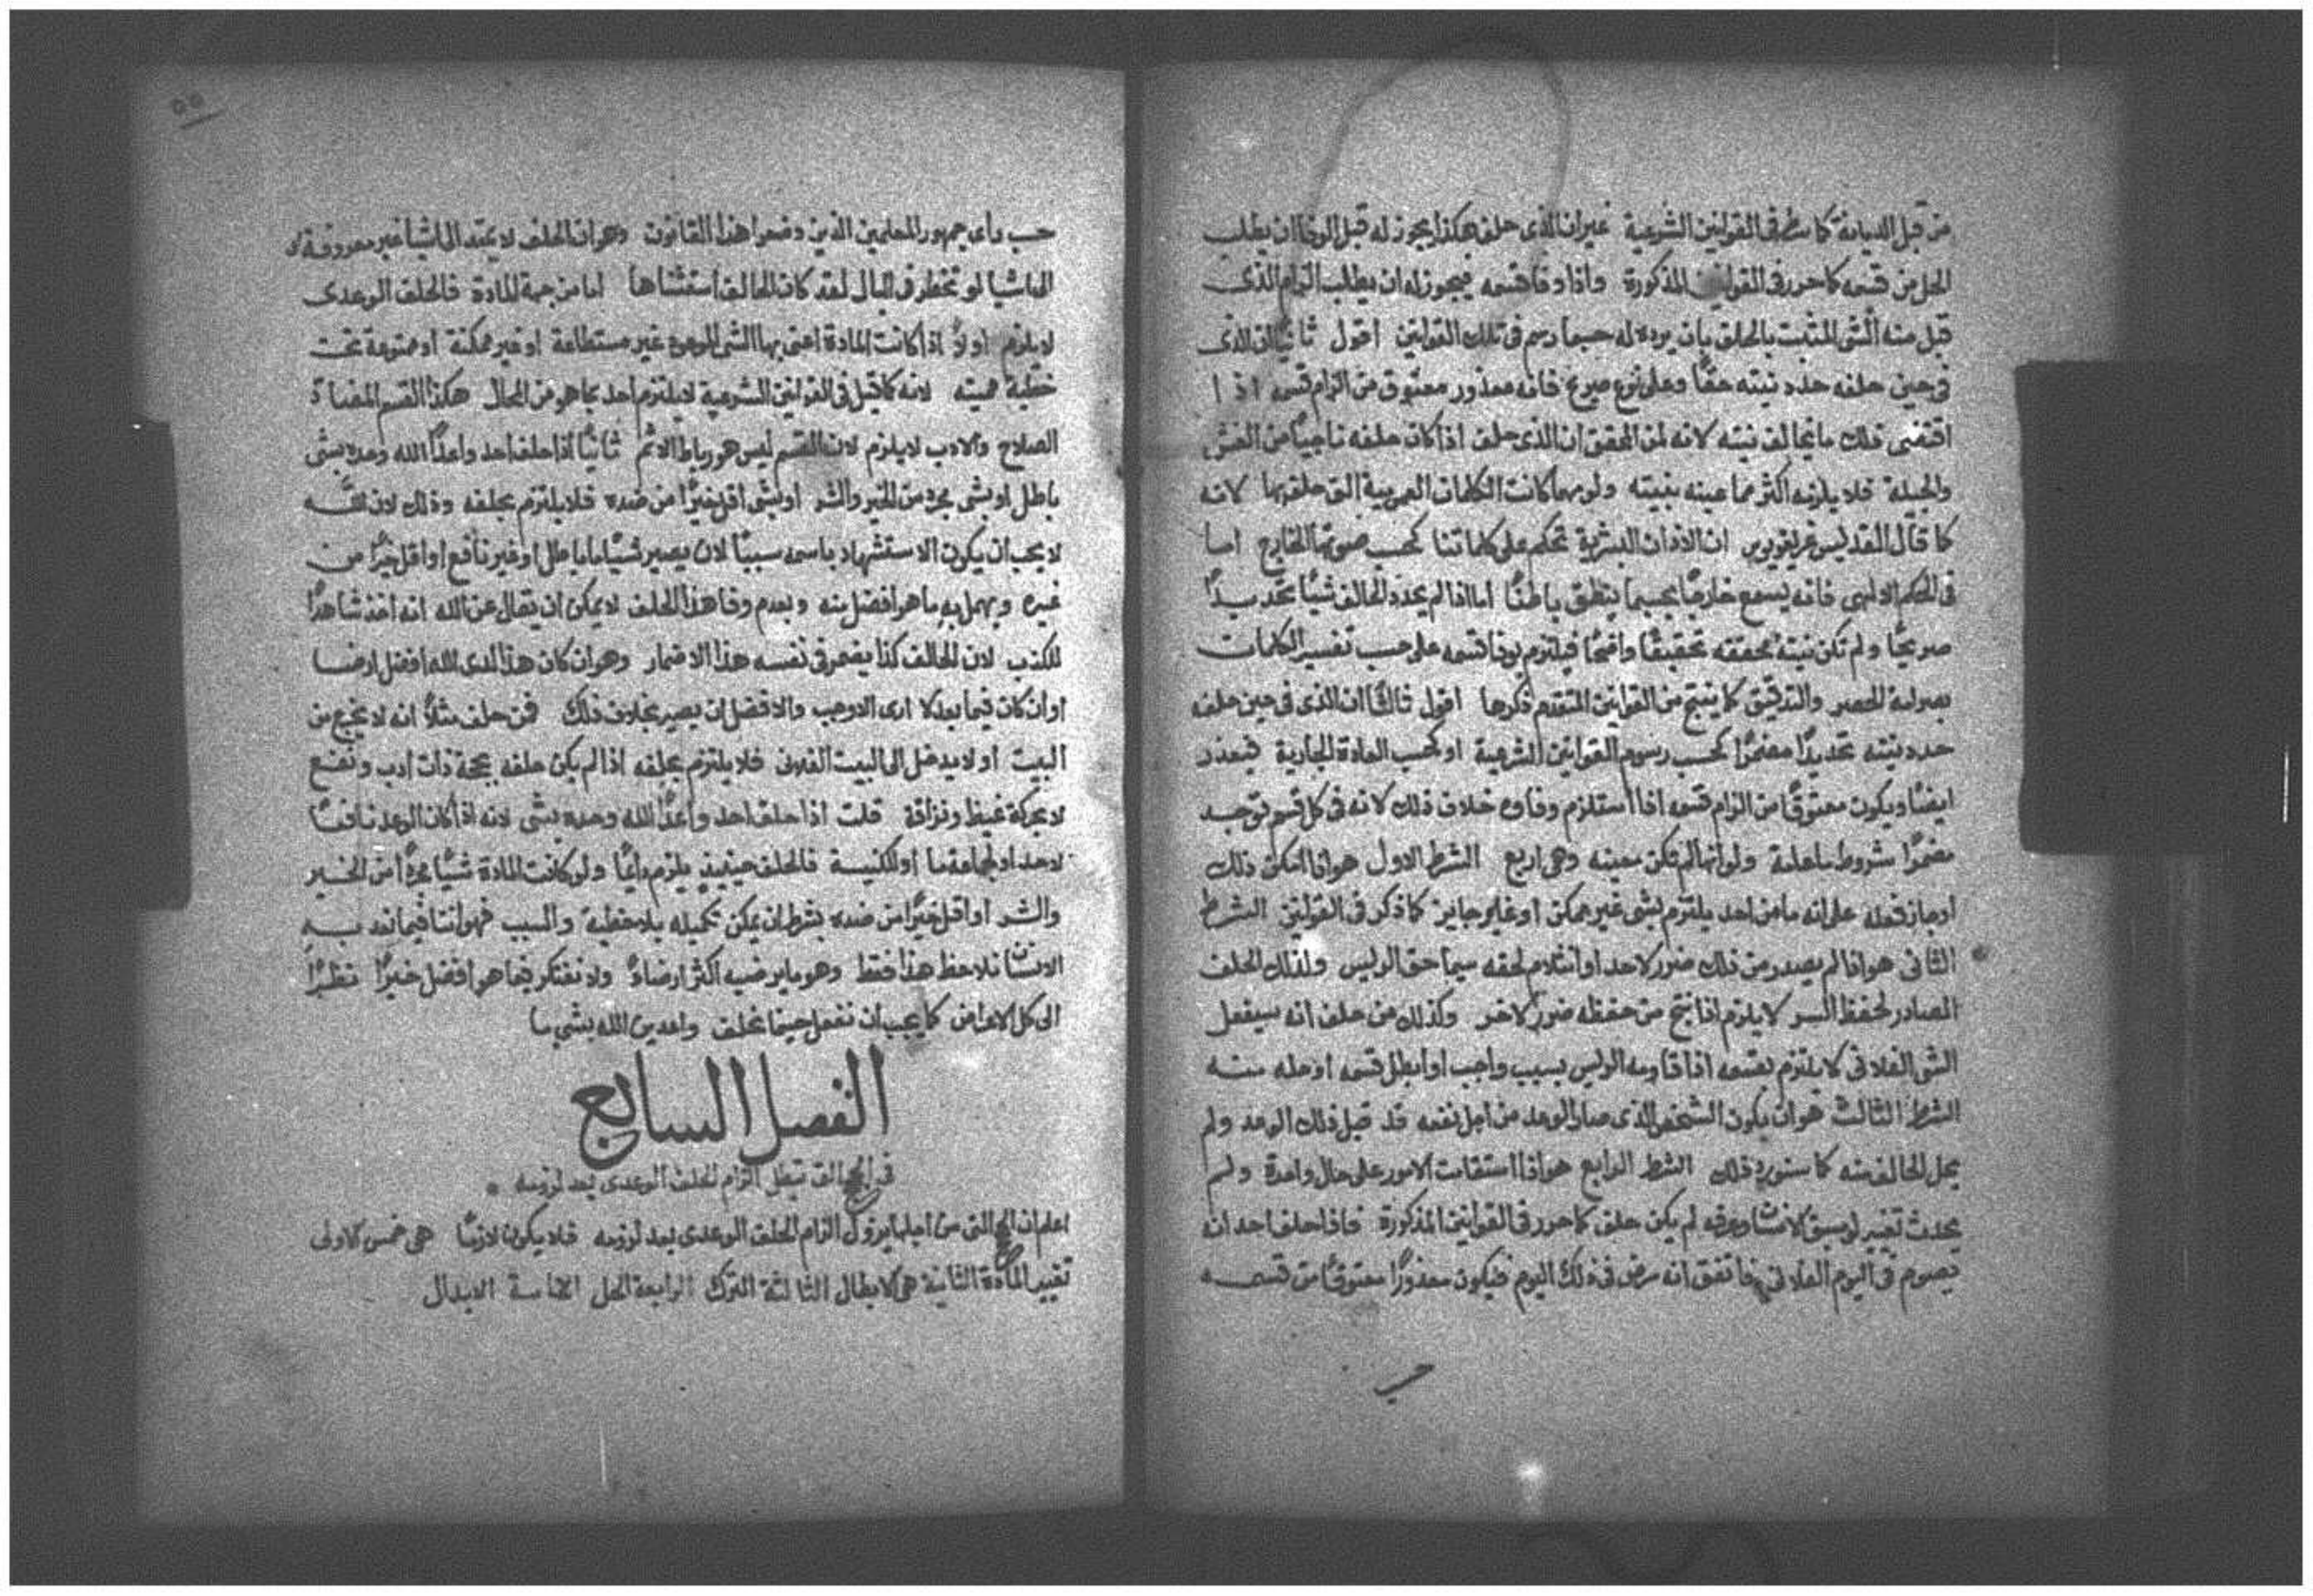 من قبل الديانة كما سطر في القوانين الشرعية غير ان الذي حلف هكذا يجوز له قبل الوفا ان يطلب
الحل من قسمه كما حرر في القوانين المذكورة واذا وفا قسمه فيجوز له ان يطلب الزام الذي
قبل منه الشي المثبت بالحلف بان يرده له حسبما رسم في تلك القوانين اقول ثانيًا ان الذي
في حين حلفه حدد نيته حقًا وعلى نوع صريح فانه معذور معتوق من الزام قسمه اذا
اقتضى ذلك ما يخالف نيته لانه لمن المحقق ان الذي حلف اذا كان حلفه ناجيًا من الغش
والحيلة فلا يلزمه اكثر مما عينه بنيته ولو مهما كانت الكلمات العربية التي حلف بها لانه
كما قال القديس غريغوريوس ان الاذان البشرية تحكم على كلماتنا كحسب صوتها الخارج اما
في الحكم الالهي فانه يسمع خارجًا بحسبما ينطق باطنًا اما اذا لم يحدد الحالف شيًا تحديدًا
صريحًا ولم تكن نيته محققه تحقيقًا واضحًا فيلتزم بوفا قسمه على حسب تفسير الكلمات
بصرامة الحصر والتدقيق كما ينتج من القوانين المتقدم ذكرها اقول ثالثًا ان الذي في حين حلفه
حدد نيته تحديدًا مضمرًا كحسب رسوم القوانين الشرعية او كحسب العادة الجارية فيعذر
ايضًا ويكون معتوقًا من الزام قسمه اذا استلزم وفاوه خلاف ذلك لانه في كل قسم توجد
مضمرًا شروط ما عامة ولو انها لم تكن معينه وهي اربع الشرط الاول هو اذا امكن ذلك
او جاز فعله على انه ما من احد يلتزم بشي غير ممكن او غير جايز كما ذكر في القوانين الشرط
الثاني هو اذا لم يصدر من ذلك ضرر لاحد او انثلام لحقه سيما حق الريس ولذلك الحلف
الصادر لحفظ السر لا يلزم اذا نتج من حفظه ضرر لاخر وكذلك من حلف انه سيفعل
الشي الفلاني لا يلتزم بقسمه اذا قاومه الريس بسبب واجب او ابطل قسمه او حله منه
الشرط الثالث هو ان يكون الشخص الذي صار الوعد من اجل نفعه قد قبل ذلك الوعد ولم
يحل الحالف منه كما سنورد ذلك الشرط الرابع هو اذا استقامت الامور على حال واحدة ولم
يحدث تغيير لو سبق الانسان وعرفه لم يكن حلف كما حرر في القوانين المذكورة فاذا حلف احد انه
يصوم في اليوم الفلاني فاتفق انه مرض في ذلك اليوم فيكون معذورًا معتوقًا من قسمه
حسب
٥٥
حسب راى جمهور المعلمين الذين وضعوا هذا القانون وهو ان الحلف لا يمتد الى اشيا غير معروفة
الى اشيا لو تخطر في البال لقد كان الحالف استثناها اما من جهة المادة فالحلف الوعدي
لا يلزم اولًا اذا كانت المادة اعني بها الشي الموعود غير مستطاعة او غير ممكنة او ممنوعة تحت
خطية مميته لانه كما قيل في القوانين الشرعية لا يلتزم احد بما هو من المحال هكذا القسم المضاد
الصلاح والادب لا يلزم لان القسم ليس هو رباط الاثم ثانيًا اذا حلف احد واعدًا الله وحده بشي
باطل او بشي مجرد من الخير والشر او بشي اقل خيرًا من ضده فلا يلتزم بحلفه وذلك لان الله
لا يجب ان يكون الاستشهاد باسمه سببًا لان يصير شيًا ما باطل او غير نافع او اقل خيرًا من
غيره ويهمل به ما هو افضل منه وبعدم وفا هذا الحلف لا يمكن ان يقال عن الله انه اخذ شاهدًا
للكذب لان الحالف كذا يضمر في نفسه هذا الاضمار وهو ان كان هذا لدى الله افضل ارضا
او ان كان فيما بعد لا ارى الاوجب والافضل ان يصير بخلاف ذلك فمن حلف مثلًا انه لا يخرج من
البيت او لا يدخل الى البيت الفلاني فلا يلتزم بحلفه اذا لم يكن حلفه بحجة ذات ادب ونفع
لا بحركة غيظ ونزاقة قلت اذا حلف احد واعدًا الله وحده بشي لانه اذا كان الوعد نافعًا
لاحد او لجماعة ما او للكنيسة فالحلف حينيذ يلزم دايمًا ولو كانت المادة شيًا مجردًا من الخير
والشر او اقل خيرًا من ضده بشرط ان يمكن تكميله بلا خطية والسبب فهو اننا فيما نعد به
الانسان نلاحظ هذا فقط وهو ما يرضيه اكثر ارضاءً ولا نفتكر فيما هو افضل خيرًا نظرًا
الى كل الاعراض كما يجب ان نفعل حينما نحلف واعدين الله بشي ما
الفصل السابع
في الحجج التي تبطل الزام الحلف الوعدي بعد لزومه
اعلم ان الحجج التي من اجلها يزول الزام الحلف الوعدي بعد لزومه فلا يكون لازمًا هي خمس الاولى
تغيير المادة الثانية هي الابطال الثالثة الترك الرابعة الحل الخامسة الابدال